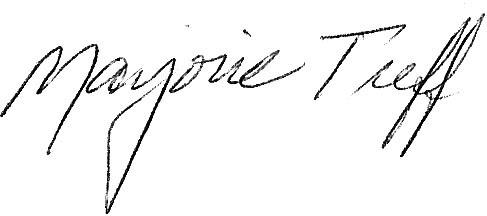 Marjorie Treff